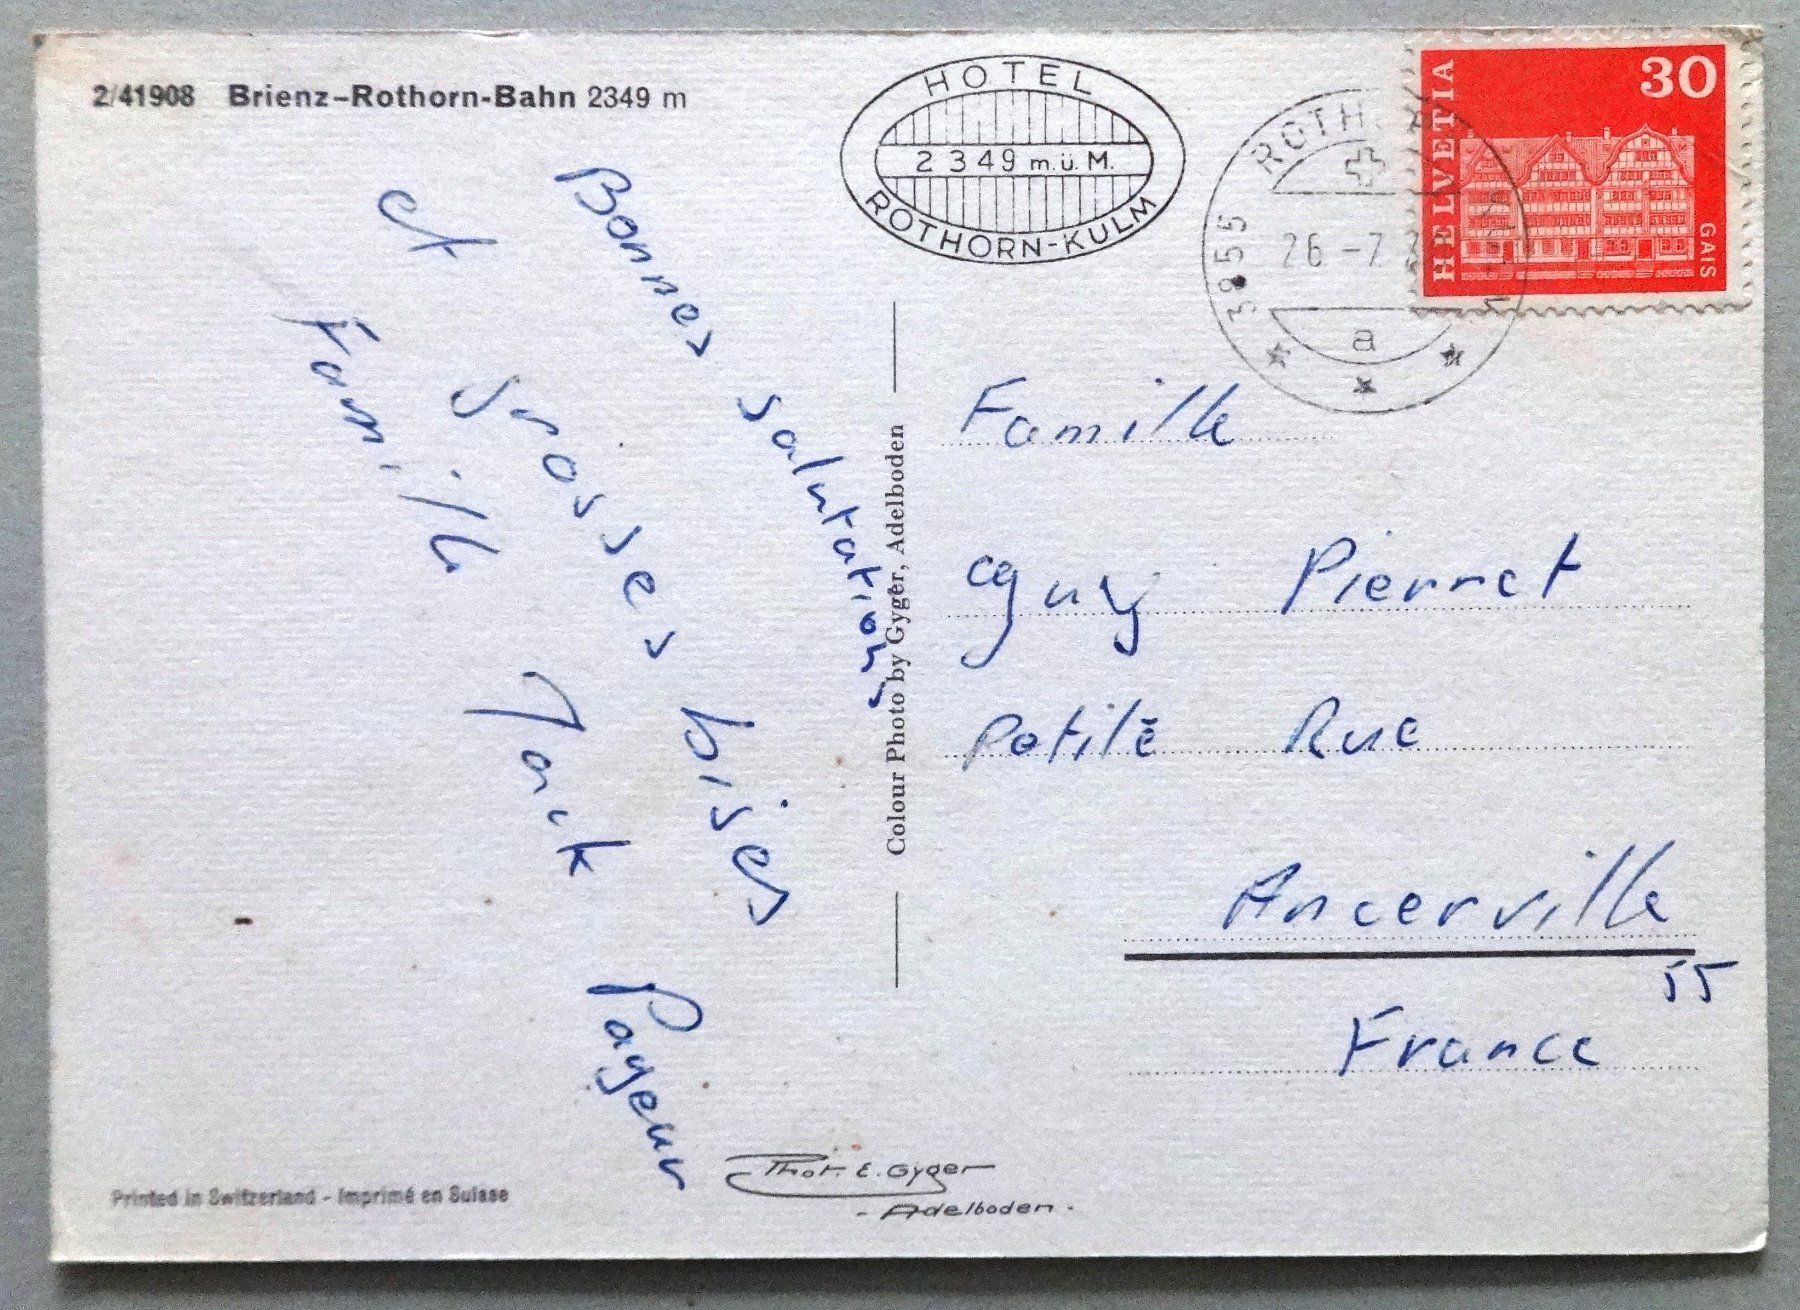 2/41908 Brienz-Rothorn-Bahn 2349 m
HOTEL
2349 m.ü.M.
ROTHORN-KULM
3855 ROTH
26 -7
a
HELVETIA
30
GAIS
Bonnes salutations
et grosses bises
Famille Jack Pageur
Colour Photo by Gyger, Adelboden
Famille
Guy Pierret
Petite Rue
Ancerville
55
France
Phot. E. Gyger
- Adelboden -
Printed in Switzerland - Imprimé en Suisse